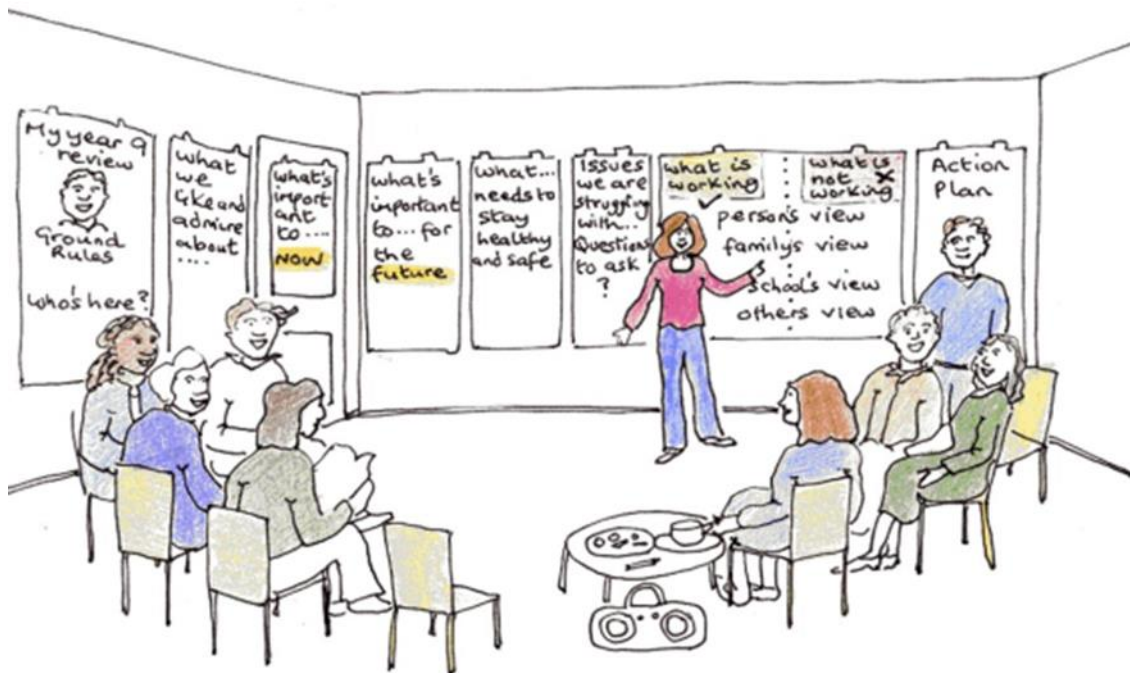 My year 9
review
Ground
Rules
who's here?
what
we
like and
admire
about
....
what's
import
ant
to ....
NOW
what's
important
to... for
the
future
what...
needs to
stay
healthy
and safe
Issues
we are
struggling
with...
Questions
to ask
?
what is
working
what is
not
working
person's view
family's view
school's view
others view
Action
Plan